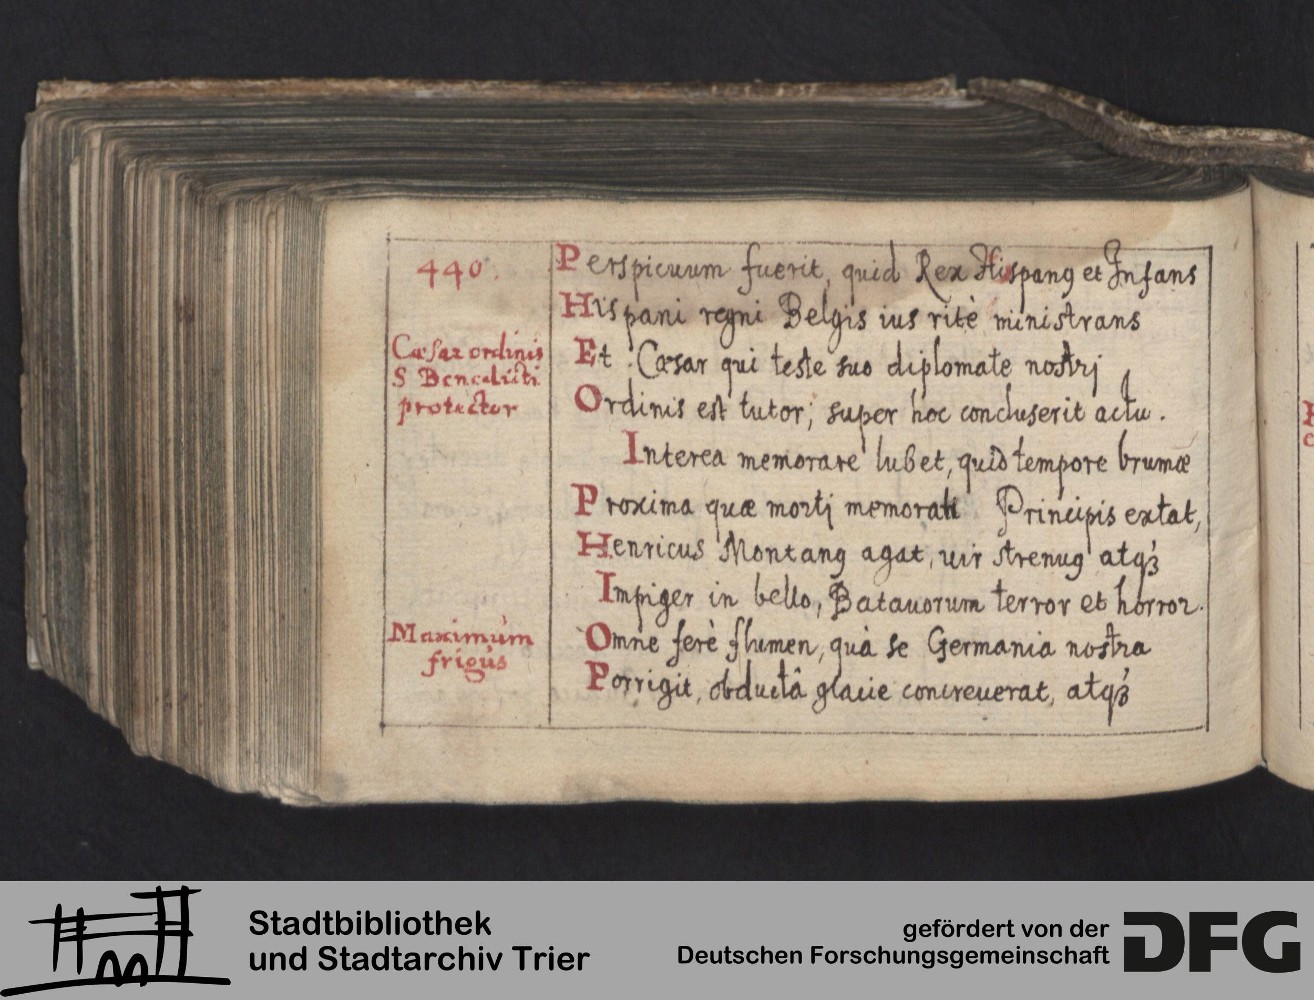 440.
Cæsar ordinis
S Benedicti
protector
Maximum
frigus
Perspicuum fuerit, quid Rex Hispanꝰ et Infans
Hispani regni Belgis ius ritè ministrans
Et Cæsar qui teste suo diplomate nostrj
Ordinis est tutor; super hoc concluserit actu.
Interea memorare lubet, quid tempore brumæ
Proxima quæ mortj memorati Principis extat,
Henricus Montanꝰ agat, uir strenuꝰ atqꝫ
Impiger in bello, Batauorum terror et horror.
Omne ferè flumen, quà se Germania nostra
Porrigit, obductâ glacie concreuerat, atqꝫ
Stadtbibliothek
und Stadtarchiv Trier
gefördert von der
Deutschen Forschungsgemeinschaft
DFG